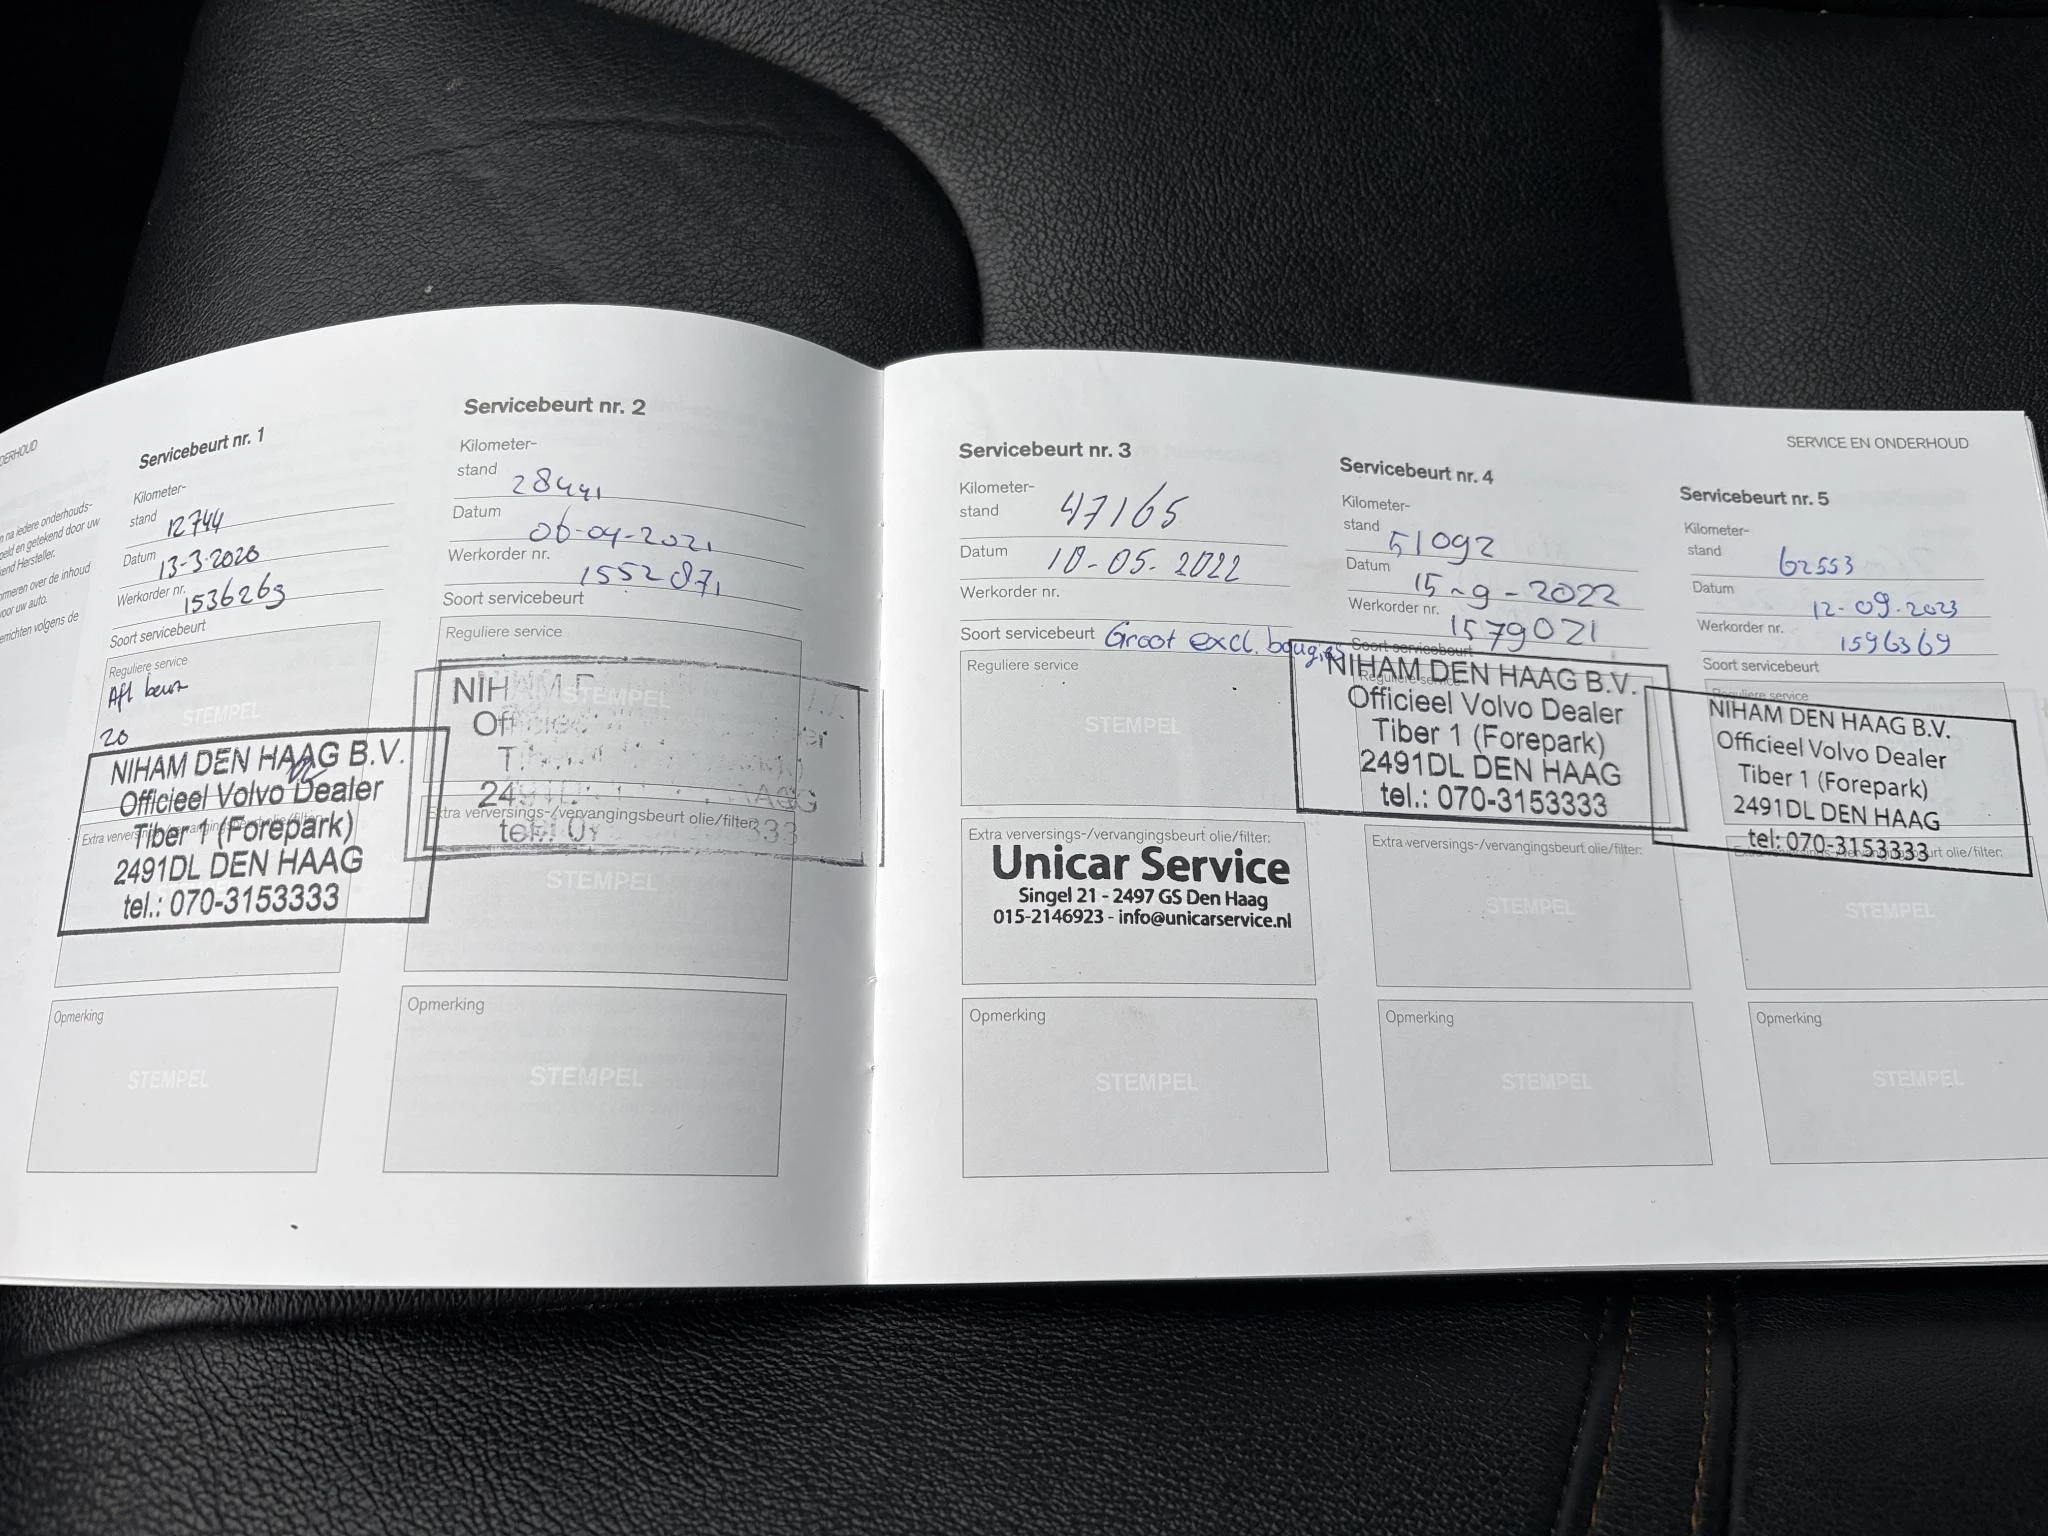 DERHOUD
n na iedere onderhouds-
eld en getekend door uw
kend Hersteller.
rmeren over de inhoud
voor uw auto.
errichten volgens de
Servicebeurt nr. 1
Kilometer-
stand 12744
Datum 13-3-2020
Werkorder nr. 1536263
Soort servicebeurt
Reguliere service
Afl beurt
STEMPEL
20
NIHAM DEN HAAG B.V.
Officieel Volvo Dealer
Tiber 1 (Forepark)
2491DL DEN HAAG
tel.: 070-3153333
Opmerking
STEMPEL
Servicebeurt nr. 2
Kilometer-
stand 28441
Datum 06-04-2021
Werkorder nr. 1552871
Soort servicebeurt
Reguliere service
STEMPEL
Extra verversings-/vervangingsbeurt olie/filter:
STEMPEL
Opmerking
STEMPEL
SERVICE EN ONDERHOUD
Servicebeurt nr. 3
Kilometer-
stand 47165
Datum 10-05-2022
Werkorder nr.
Soort servicebeurt Groot excl. bougies
Reguliere service
STEMPEL
Extra verversings-/vervangingsbeurt olie/filter:
Unicar Service
Singel 21 - 2497 GS Den Haag
015-2146923 - info@unicarservice.nl
Opmerking
STEMPEL
Servicebeurt nr. 4
Kilometer-
stand 51092
Datum 15-9-2022
Werkorder nr. 1579021
Soort servicebeurt
Reguliere service
NIHAM DEN HAAG B.V.
Officieel Volvo Dealer
Tiber 1 (Forepark)
2491DL DEN HAAG
tel.: 070-3153333
Extra verversings-/vervangingsbeurt olie/filter:
STEMPEL
Opmerking
STEMPEL
Servicebeurt nr. 5
Kilometer-
stand 62553
Datum 12-09-2023
Werkorder nr. 1596369
Soort servicebeurt
Reguliere service
NIHAM DEN HAAG B.V.
Officieel Volvo Dealer
Tiber 1 (Forepark)
2491DL DEN HAAG
tel: 070-3153333
Extra verversings-/vervangingsbeurt olie/filter:
STEMPEL
Opmerking
STEMPEL